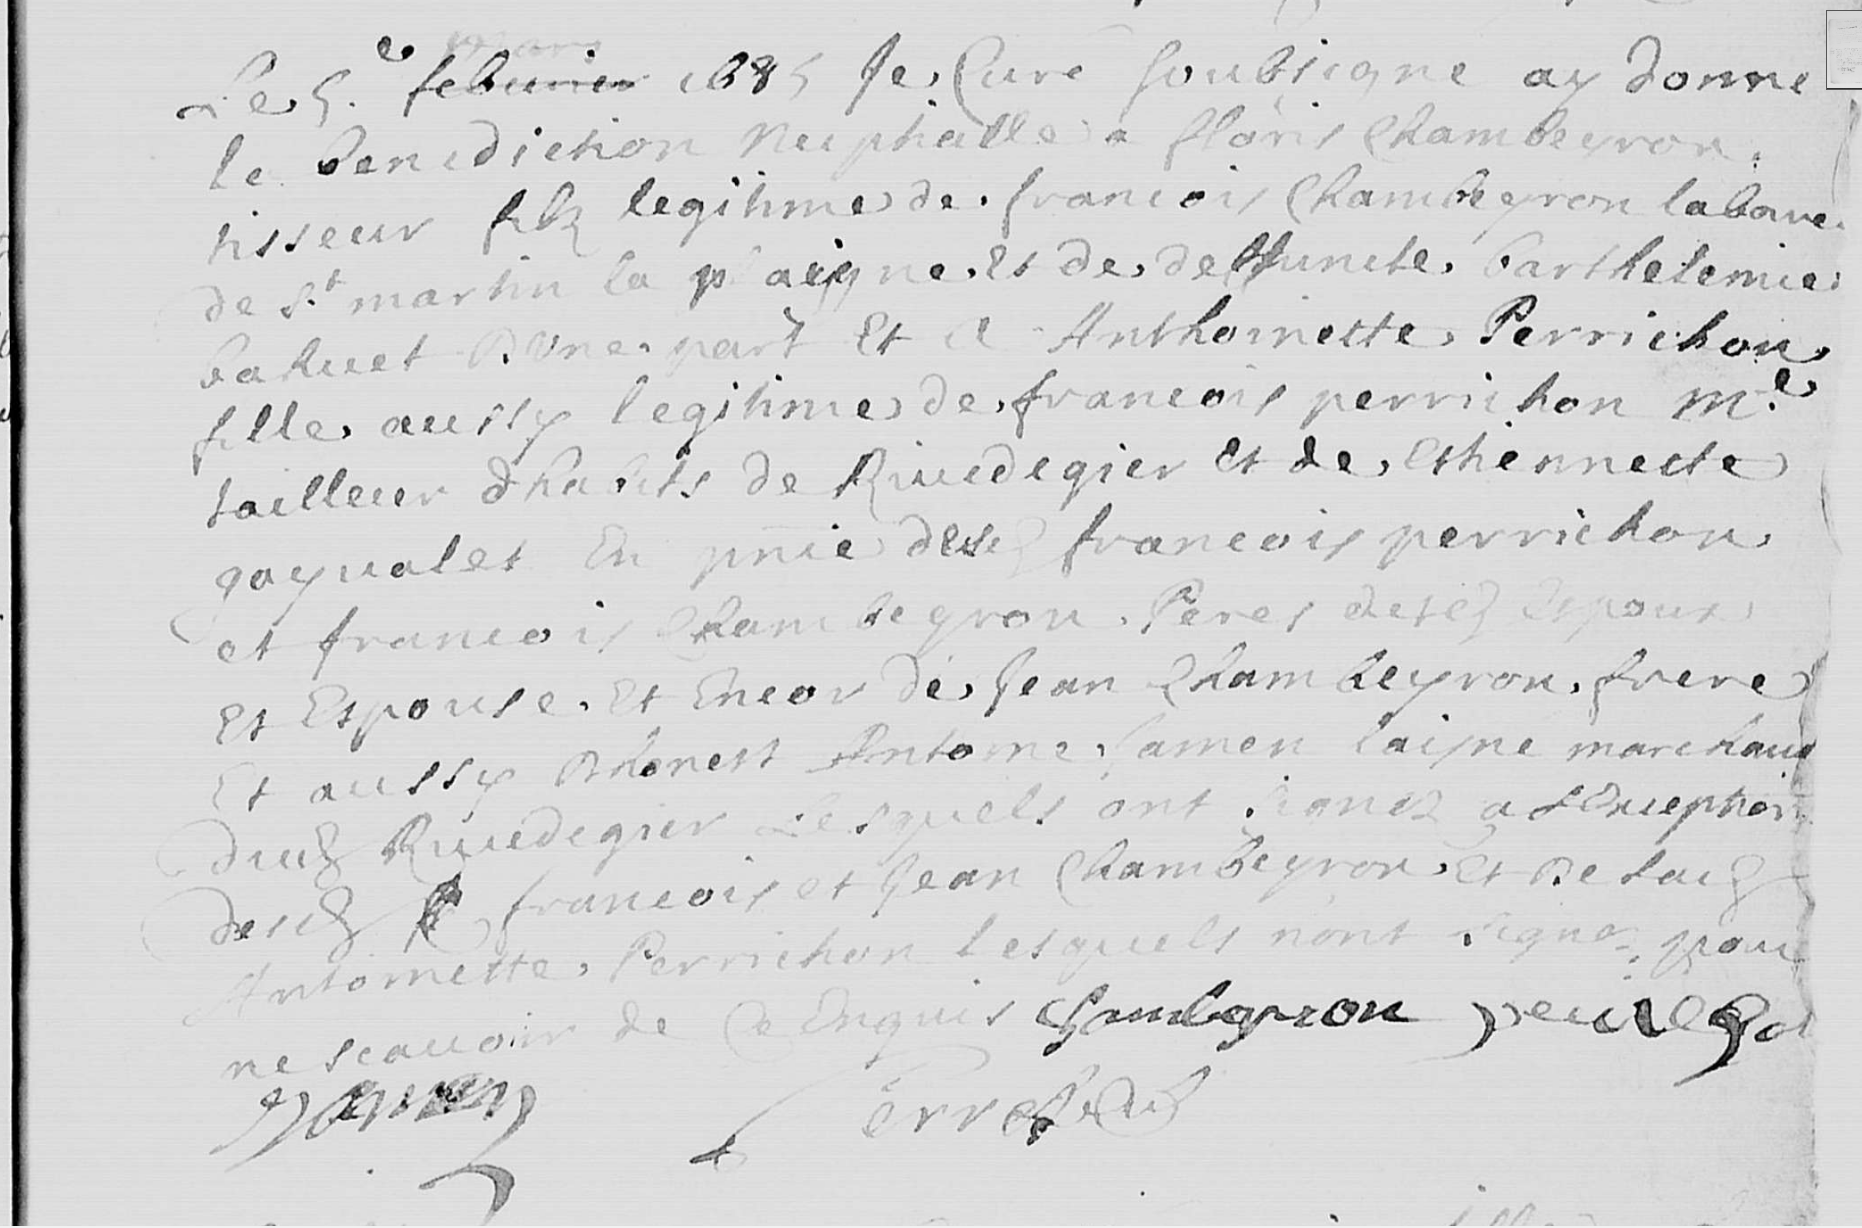 mars
Le 5.e febvrier 1685 Je Curé soubsigné ay donné
la benediction Nuptialle a floris Chambeyron
tisseur filz legitime de francois Chambeyron laboure
de St martin la plaigne et de deffuncte barthelemie
bahuet D'une part Et a Anthoinette Perrichon
fille aussy legitime de francois perrichon M.e
tailleur d'habits de Rivedegier et de Esthiennette
gayvalet En pnce desd francois perrichon
et francois Chambeyron Peres desd Espoux
et Espouse et Encor de Jean Chambeyron frere
Et aussy d'honest Antoine Jamen laisne marchand
dud Rivedegier Lesquels ont signez a l'Exception
desd francois et Jean Chambeyron et De lad
Antoinette Perrichon lesquels n'ont signez pour
ne scavoir de Ce Enquis Chambeyron